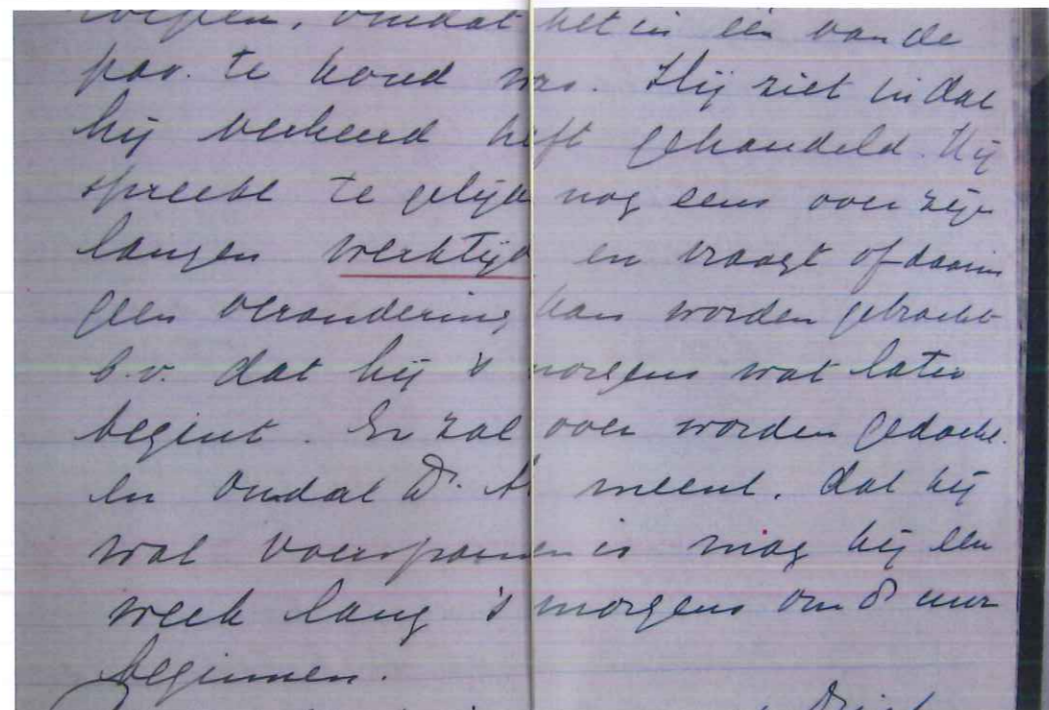 omdat het in één van de
pav. te koud was. Hij ziet in dat
hij verkeerd heeft gehandeld. Hij
spreekt te gelijk nog eens over zijn
langen werktijd en vraagt of daarin
geen verandering kan worden gebracht
b.v. dat hij 's morgens wat later
begint. Er zal over worden gedacht.
en omdat Dr. meent, dat hij
wat overspannen is mag hij een
week lang 's morgens om 8 uur
beginnen.